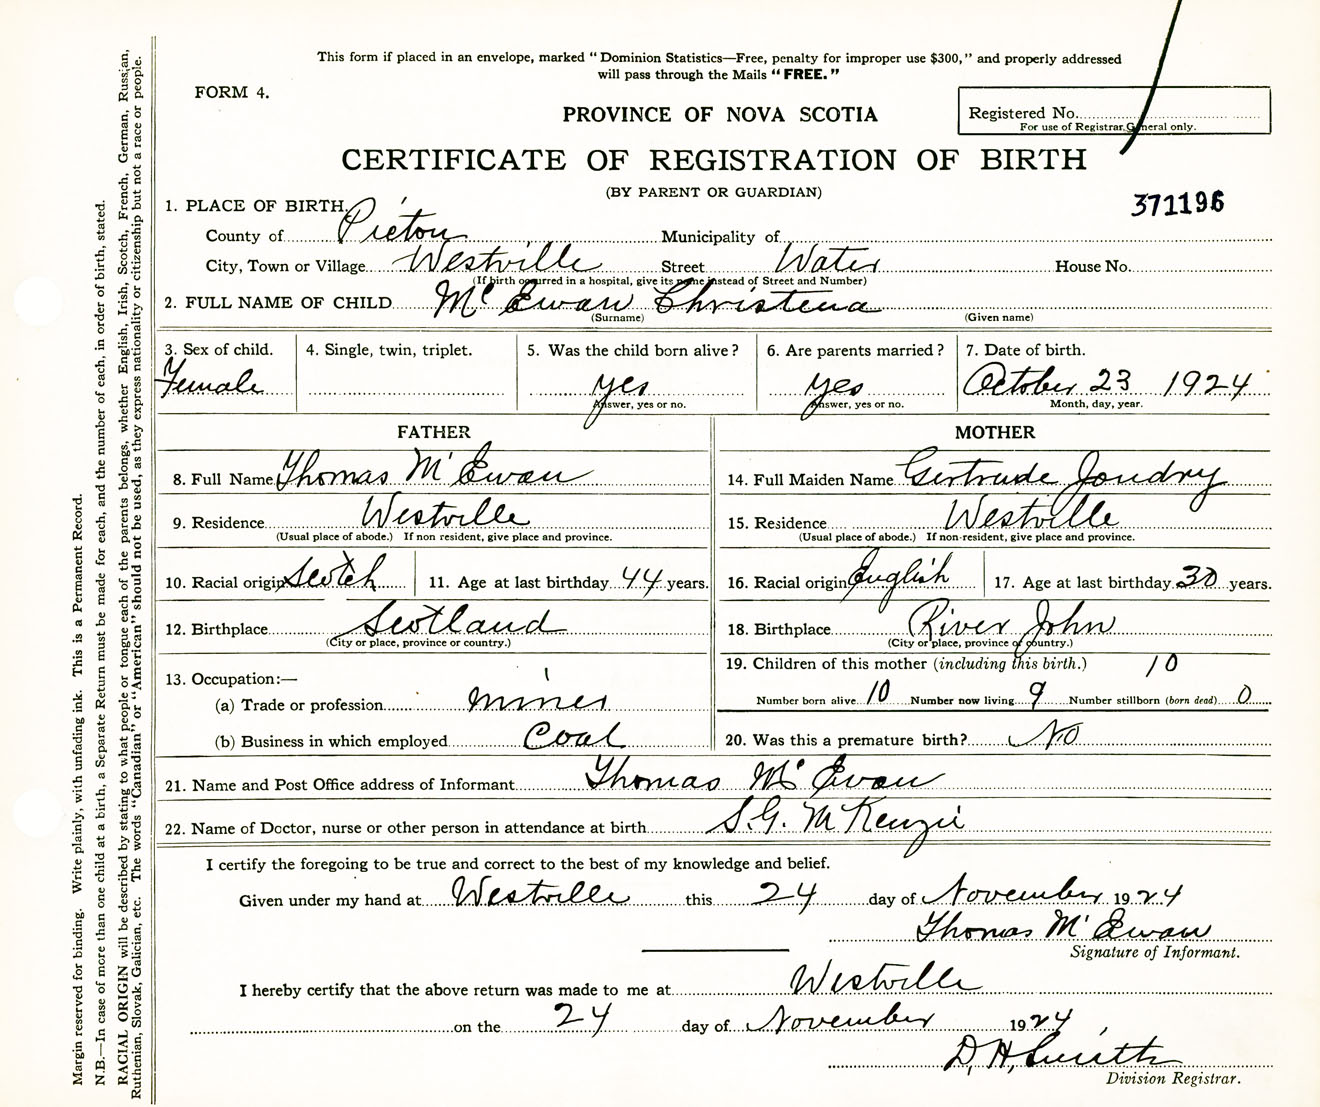 This form if placed in an envelope, marked "Dominion Statistics—Free, penalty for improper use $300," and properly addressed
will pass through the Mails "FREE."
FORM 4.
PROVINCE OF NOVA SCOTIA
Registered No.
For use of Registrar General only.
CERTIFICATE OF REGISTRATION OF BIRTH
(BY PARENT OR GUARDIAN)
371196
1. PLACE OF BIRTH.
County of Pictou Municipality of
City, Town or Village Westville Street Water House No.
(If birth occurred in a hospital, give its name instead of Street and Number)
2. FULL NAME OF CHILD McEwan Christena
(Surname) (Given name)
3. Sex of child. 4. Single, twin, triplet. 5. Was the child born alive? 6. Are parents married? 7. Date of birth.
Female yes yes October 23 1924
Answer, yes or no. Answer, yes or no. Month, day, year.
FATHER MOTHER
8. Full Name Thomas McEwan 14. Full Maiden Name Gertrude Joudry
9. Residence Westville 15. Residence Westville
(Usual place of abode.) If non resident, give place and province. (Usual place of abode.) If non-resident, give place and province.
10. Racial origin Scotch 11. Age at last birthday 44 years. 16. Racial origin English 17. Age at last birthday 30 years.
12. Birthplace Scotland 18. Birthplace River John
(City or place, province or country.) (City or place, province or country.)
19. Children of this mother (including this birth.) 10
13. Occupation:—
Number born alive 10 Number now living 9 Number stillborn (born dead) 0
(a) Trade or profession miner
(b) Business in which employed Coal 20. Was this a premature birth? No
21. Name and Post Office address of Informant Thomas McEwan
22. Name of Doctor, nurse or other person in attendance at birth S.G. McKenzie
I certify the foregoing to be true and correct to the best of my knowledge and belief.
Given under my hand at Westville this 24 day of November 1924
Thomas McEwan
Signature of Informant.
I hereby certify that the above return was made to me at Westville
on the 24 day of November 1924
D. H. Smith
Division Registrar.
Margin reserved for binding. Write plainly, with unfading ink. This is a Permanent Record.
N.B.—In case of more than one child at a birth, a Separate Return must be made for each, and the number of each, in order of birth, stated.
RACIAL ORIGIN will be described by stating to what people or tongue each of the parents belongs, whether English, Irish, Scotch, French, German, Russian,
Ruthenian, Slovak, Galician, etc. The words "Canadian" or "American" should not be used, as they express nationality or citizenship but not a race or people.